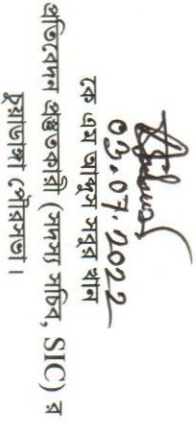 03.07.2022
কে এম আব্দুস সবুর খান
প্রতিবেদন প্রস্তুতকারী (সদস্য সচিব, SIC) র
চুয়াডাঙ্গা পৌরসভা।